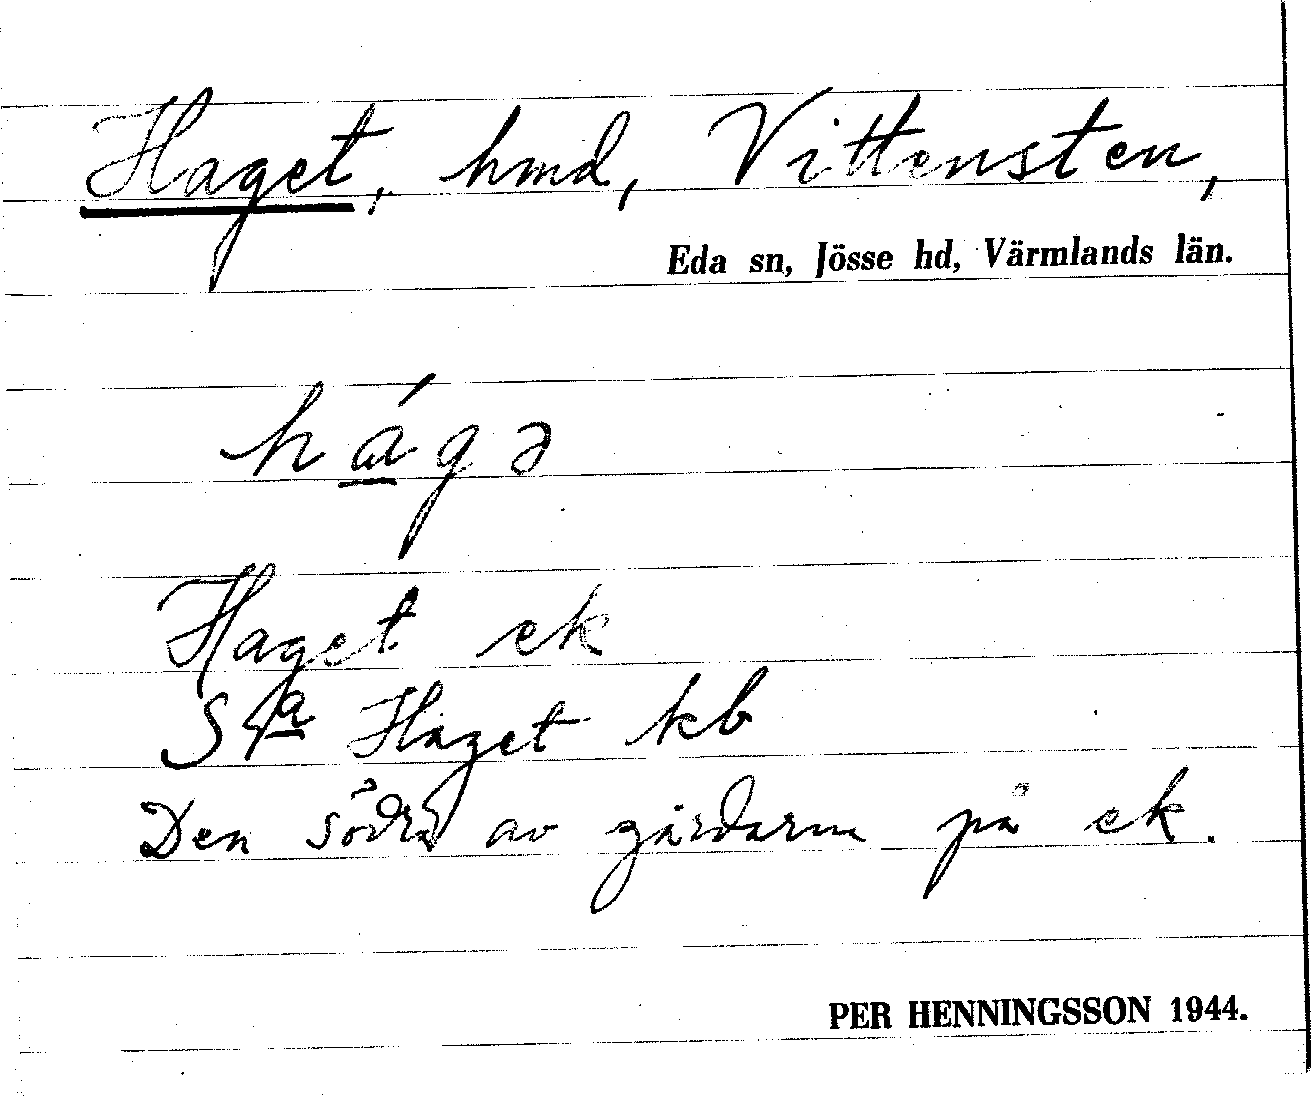 Haget, hmd, Vittensten,
Eda sn, Jösse hd, Värmlands län.
há̱gə
Haget ek
S:a Haget kb
Den södra av gårdarna på ek.
PER HENNINGSSON 1944.